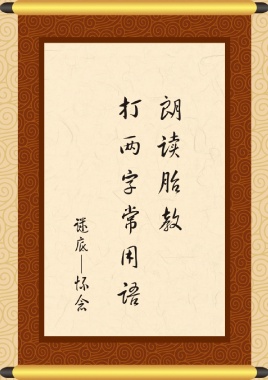 朗读胎教
打两字常用语
谜底—怀念